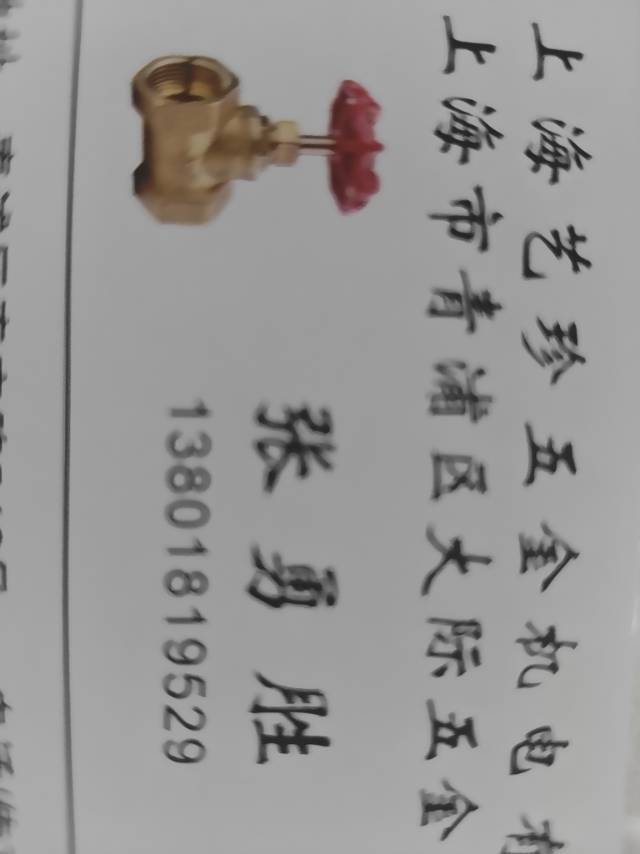 上海艺珍五金机电有
上海市青浦区大际五金
张勇胜
13801819529